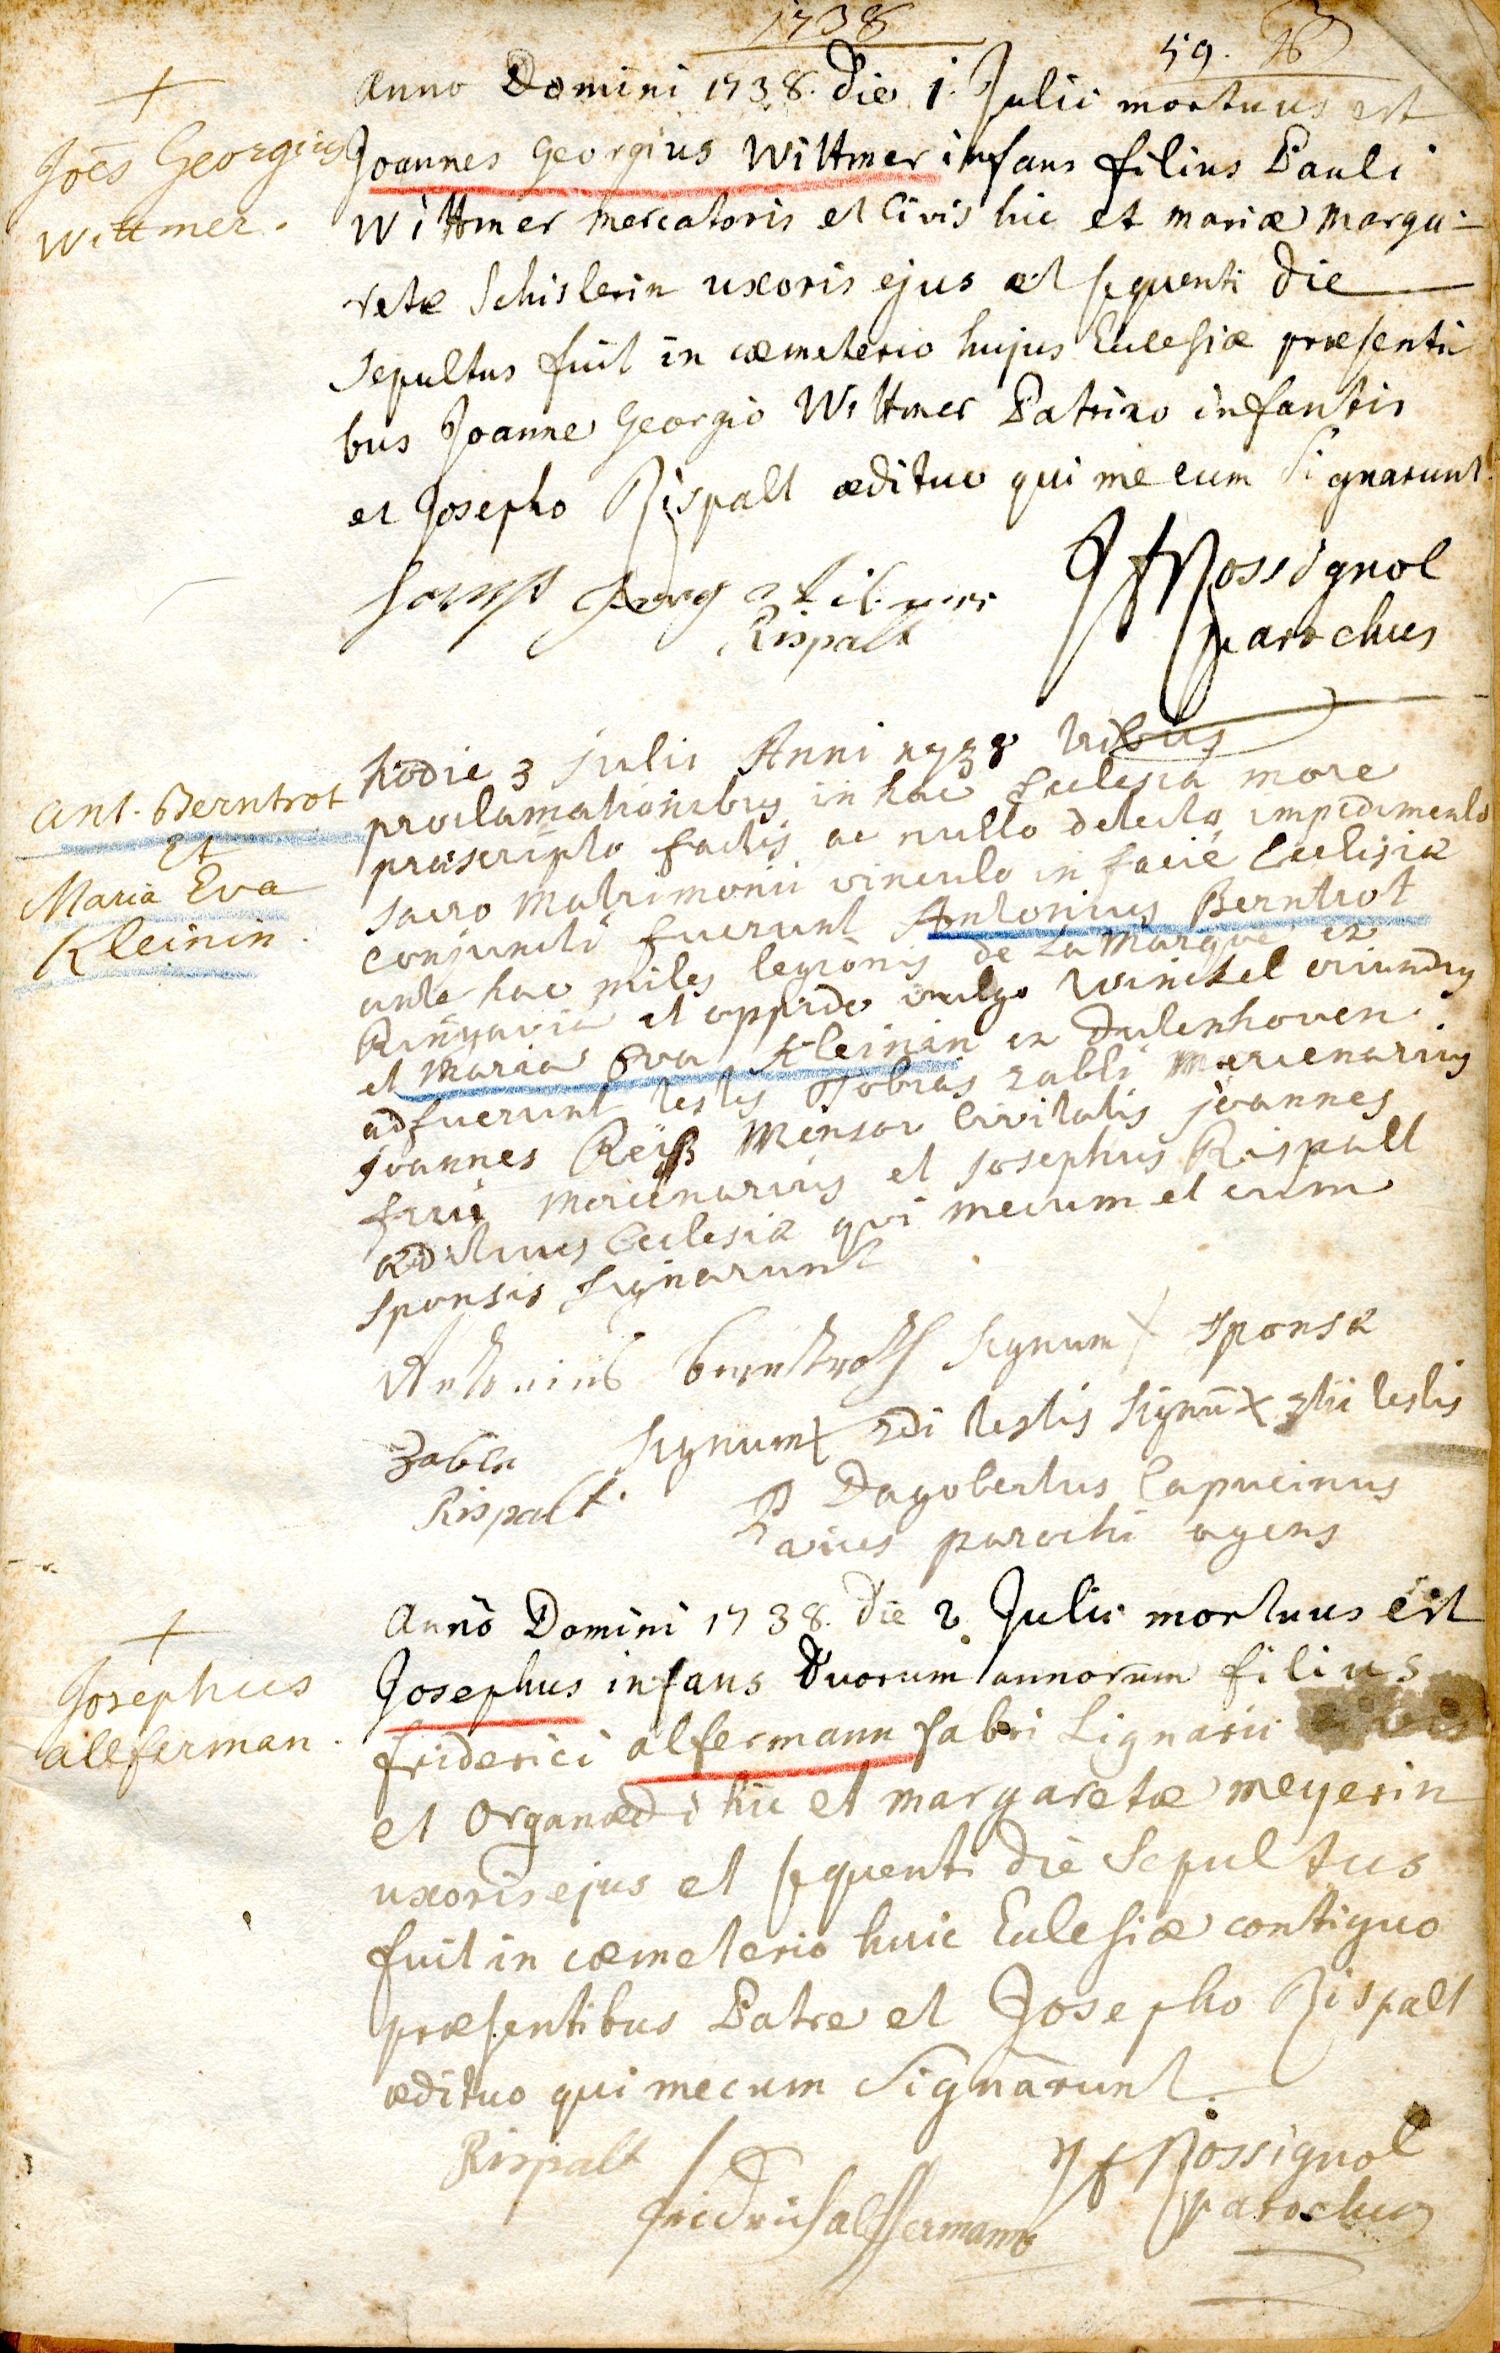 1738
59.
+
Joēs Georgius
Wittmer.
Anno Domini 1738. Die 1. Julii mortuus est
Joannes Georgius Wittmer infans filius Pauli
Wittmer mercatoris et Civis hic et mariæ marga-
retæ Schislerin uxoris ejus et sequenti Die
Sepultus fuit in cæmeterio hujus Ecclesiæ præsenti
bus Joanne Georgio Wittmer Patrino infantis
et Josepho Rispalt ædituo qui me cum Signarunt.
Rispalt
J f Rossignol
parochus
Ant. Berntrot
Et
Maria Eva
Kleinin.
hodie 3 Julii Anni 1738 tribus
proclamationibus in hac Ecclesia more
præscripto factis ac nullo detecto impedimento
sacro Matrimonii vinculo in facie Ecclesiæ
conjuncti fuerunt Antonius Berntrot
ante hac miles legionis de La Marque ex
Ringavia et oppido vulgo Winckel oriundus
et Maria Eva Kleinin ex Dutenhoven
adfuerunt testes Tobias Zabli Mercenarius
Joannes Reiß Mensor Civitatis joannes
mercenarius et Josephus Rispalt
ædituus Ecclesiæ qui mecum et cum
Sponsis signarunt
Antonius bernttroth Signum X sponsæ
Signum X 2di testis Signū X 3tii testis
Rispalt.
P Dagobertus Capucinus
vices parochi agens
+
Josephus
allferman.
Anno Domini 1738. die 2. Julii mortuus est
Josephus infans Duorum annorum filius
friderici alfermann fabri Lignarii
et Organædi hic et margaretæ meyerin
uxoris ejus et sequenti die Sepultus
fuit in cæmeterio huic Ecclesiæ contiguo
præsentibus Patre et Josepho Rispalt
ædituo qui mecum Signarunt.
Rispalt
fridrich alffermann
J f Rossignol
parochus